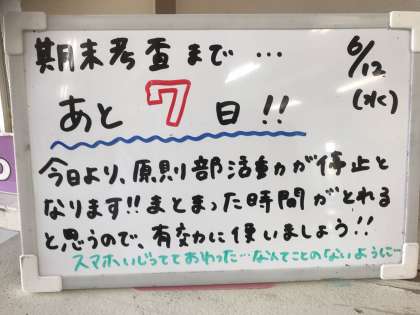 期末考査まで…
6/12
(水)
あと7日!!
今日より、原則部活動が停止と
なります!!まとまった時間がとれる
と思うので、有効に使いましょう!!
スマホいじってておわった…なんてことのないように